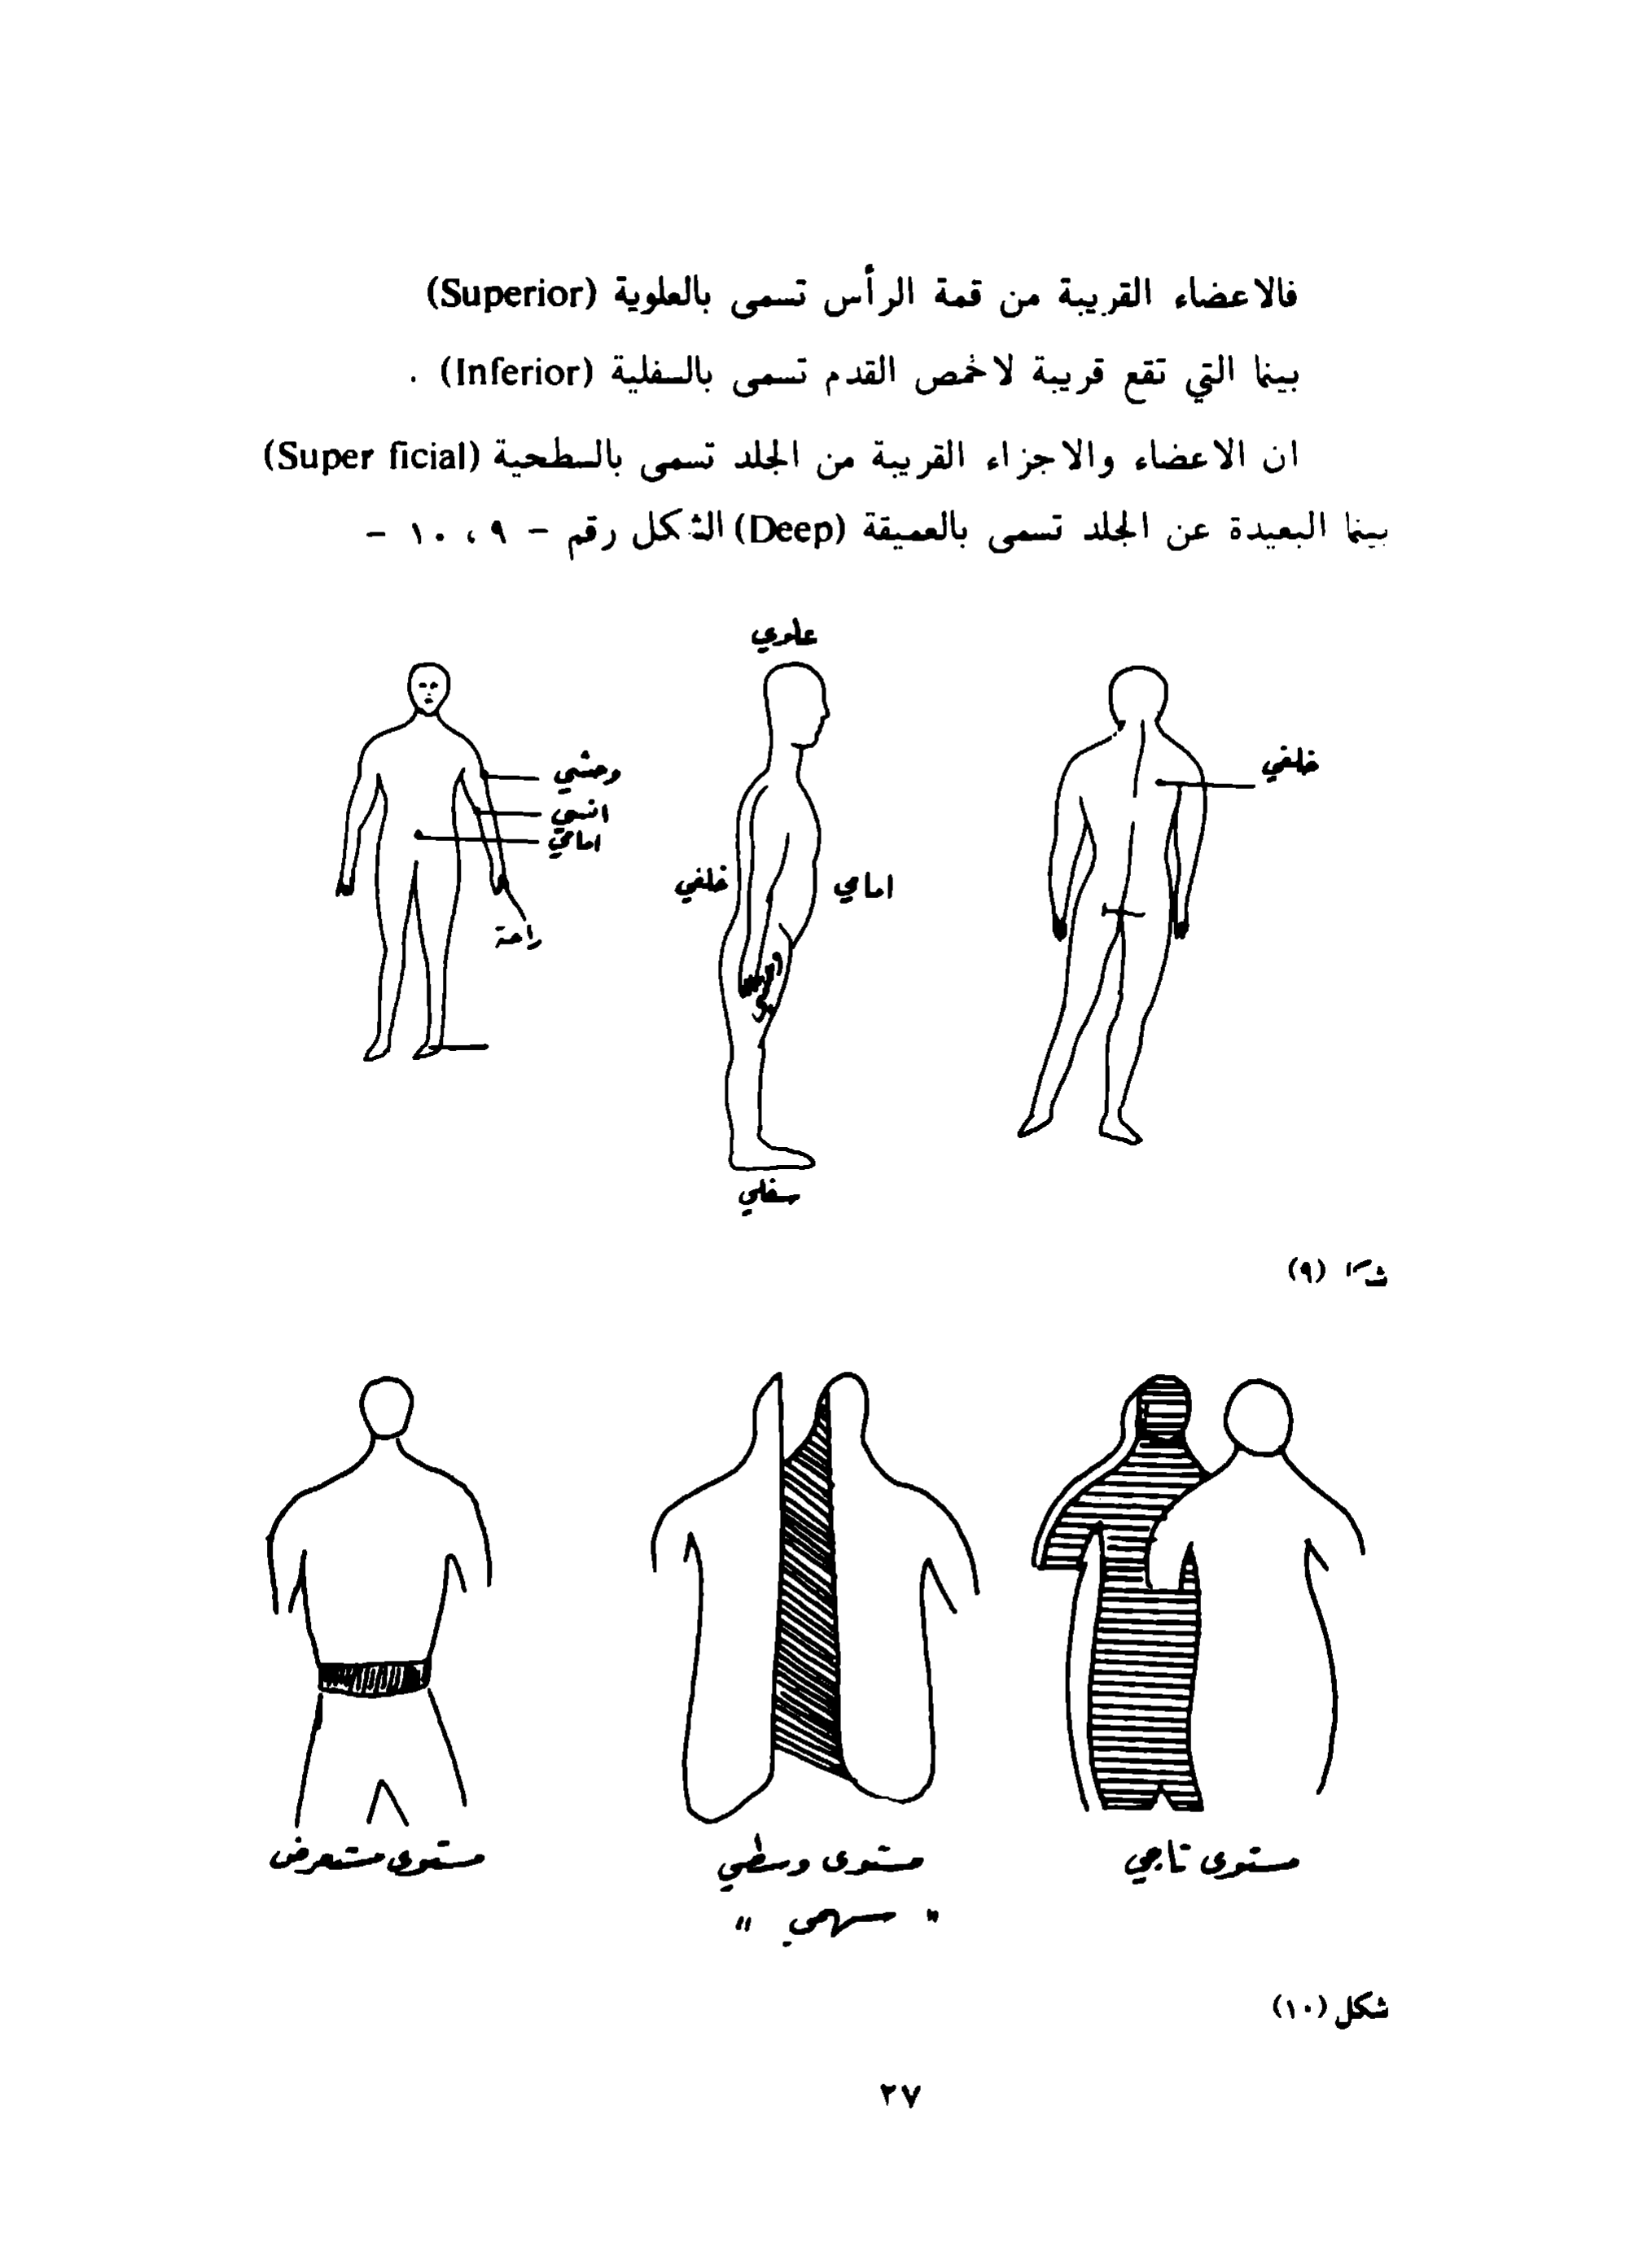 فالاعضاء القريبة من قمة الرأس تسمى بالعلوية (Superior)
بينما التي تقع قريبة لاخمص القدم تسمى بالسفلية (Inferior) .
ان الاعضاء والاجزاء القريبة من الجلد تسمى بالسطحية (Super ficial)
بينما البعيدة عن الجلد تسمى بالعميقة (Deep) الشكل رقم - ٩ ، ١٠ -
علوي
خلفي
وحشي
انسي
امامي
امامي
خلفي
راحة
وحشي
سفلي
(٩)
مستوى تاجي
مستوى وسطي
" سهمي "
مستوى مستعرض
شكل (١٠)
٢٧